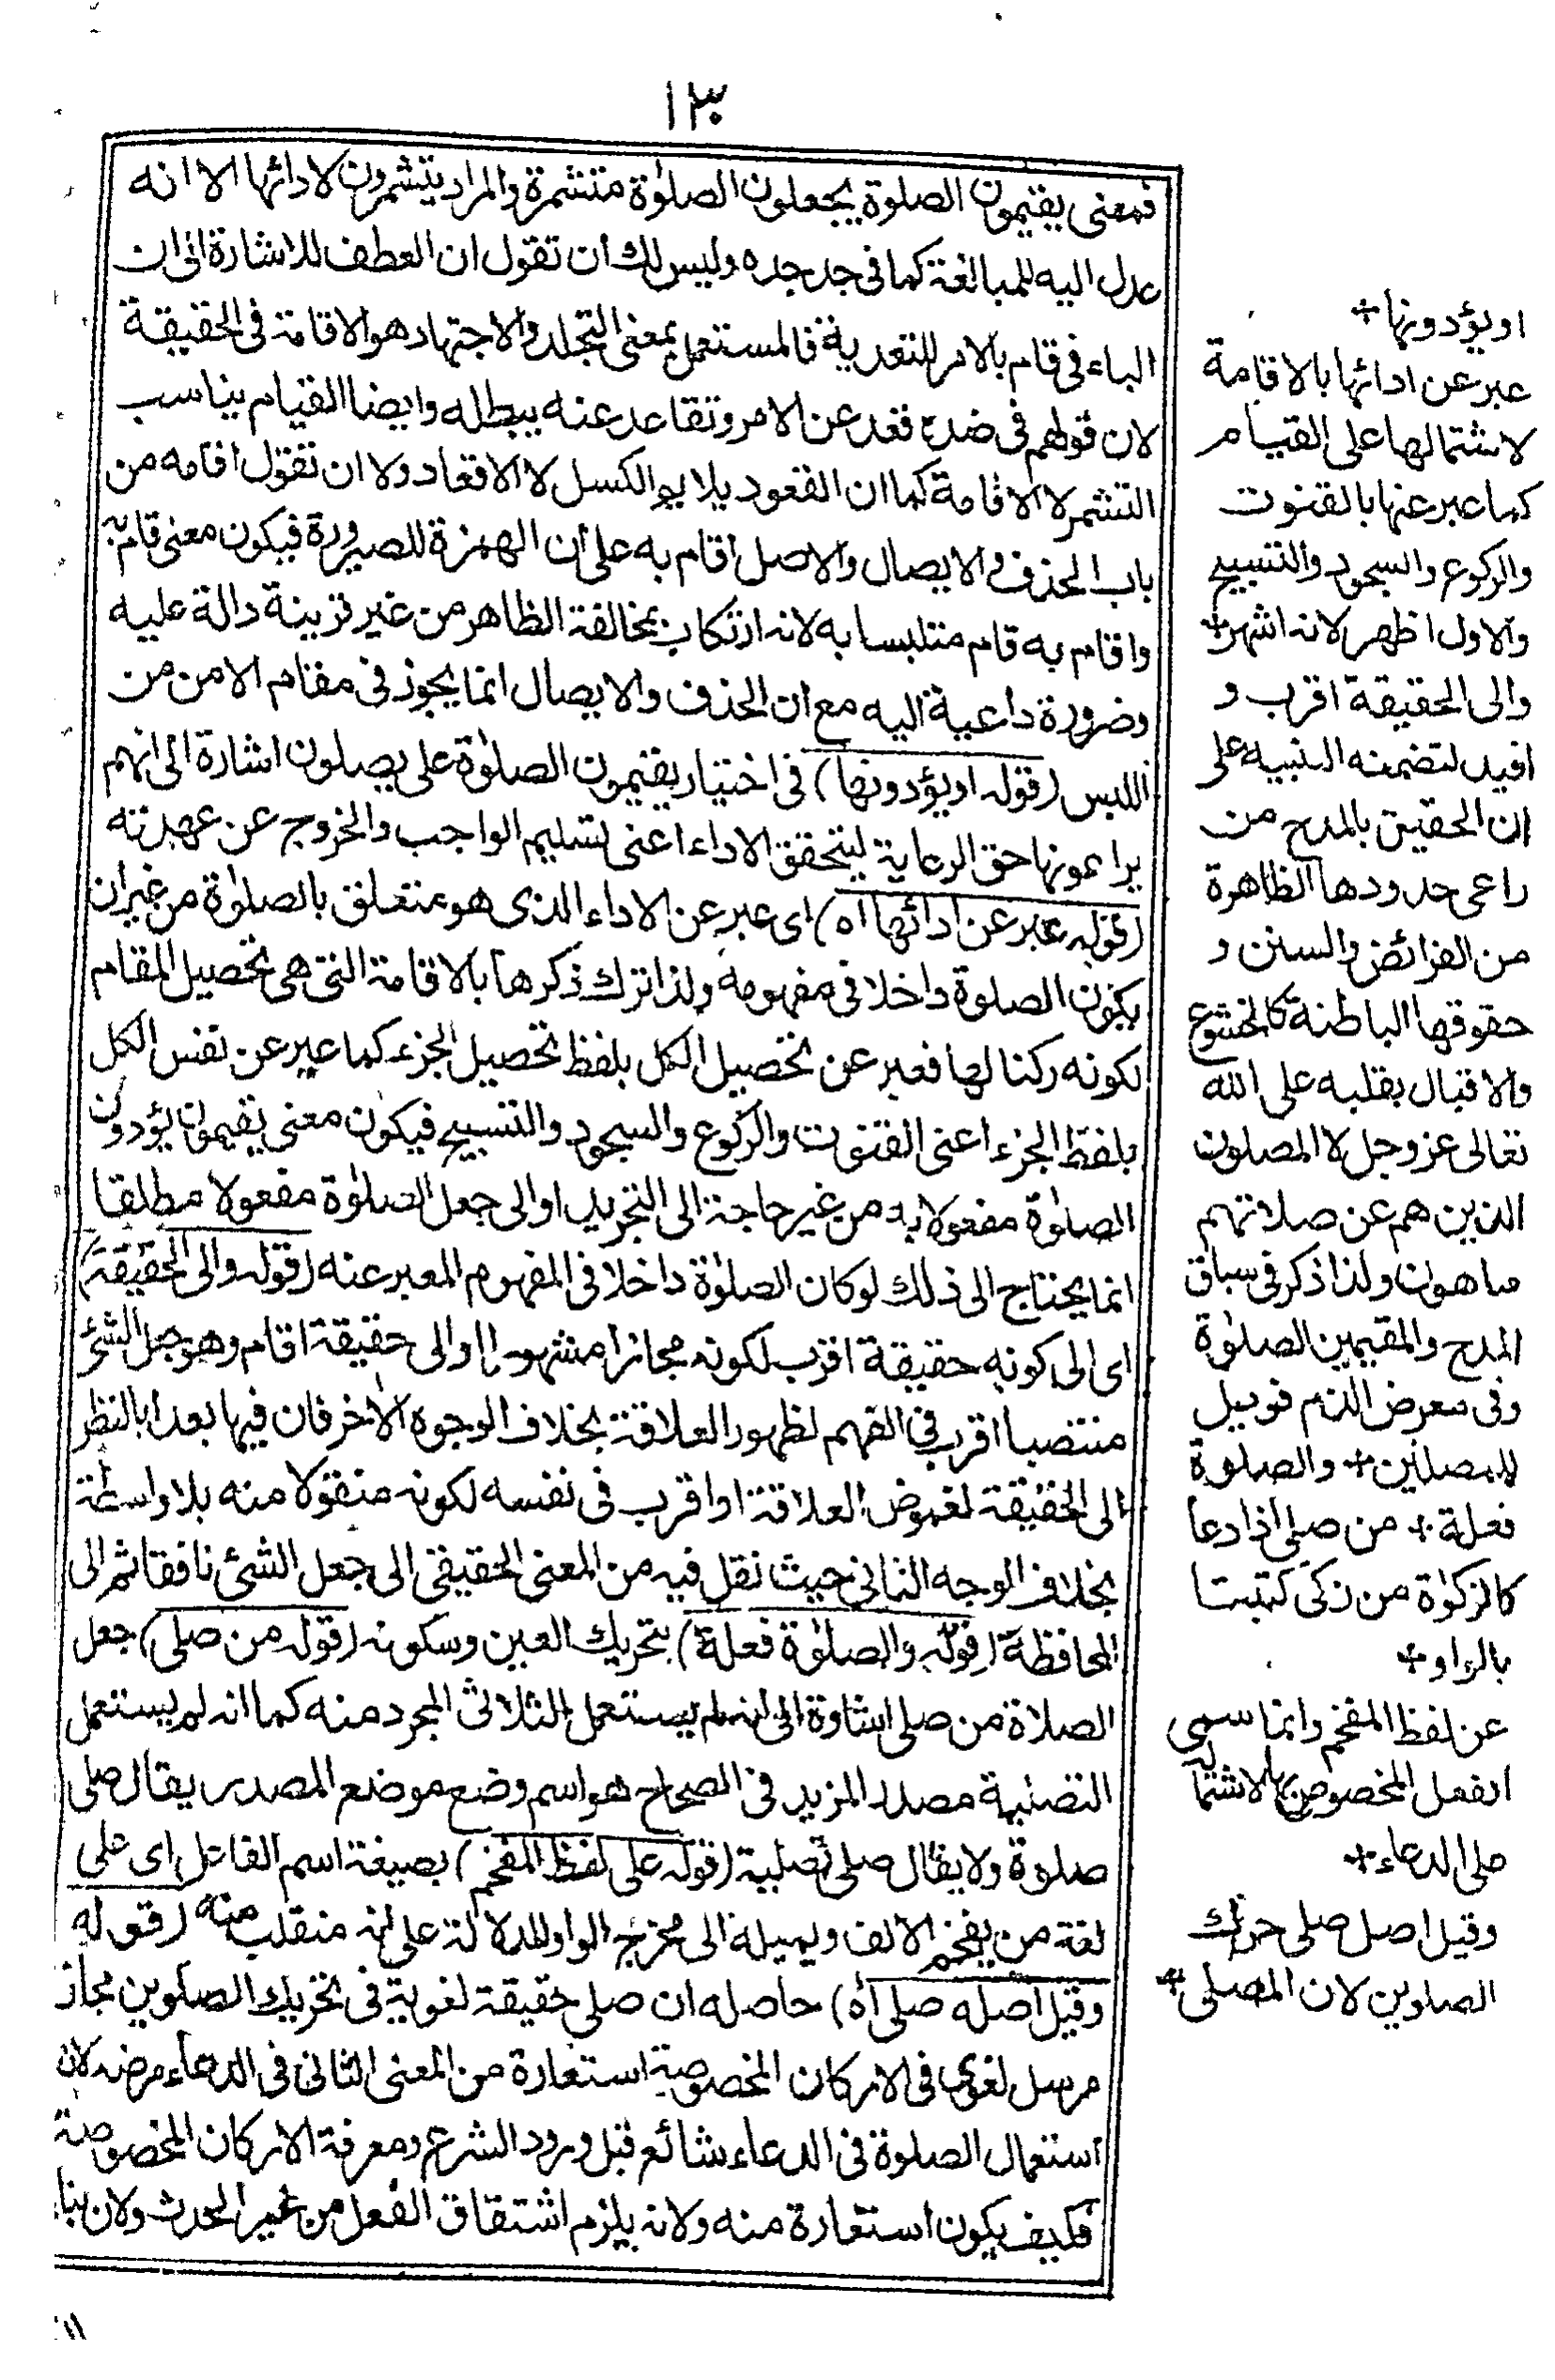 ١٣٠
فمعنى يقيمون الصلوة يجعلون الصلوٰة متشمرة والمراد يتشمرون لادائها الا انه
عدل اليه للمبالغة كما فى جد جده وليس لك ان تقول ان العطف للاشارة الى ان
الباء فى قام بالامر للتعدية فالمستعمل بمعنى التجلد والاجتهاد هو الاقامة فى الحقيقة
لان قولهم فى ضده قعد عن الامر وتقاعد عنه يبطله وايضا القيام يناسب
التشمر لا الاقامة كما ان القعود يلايم الكسل لا الاقعاد ولا ان تقول اقامه من
باب الحذف والايصال والاصل اقام به على ان الهمزة للصيرورة فيكون معنى قام به
واقام به قام متلبسا به لانه ارتكاب بمخالفة الظاهر من غير قرينة دالة عليه
وضرورة داعية اليه مع ان الحذف والايصال انما يجوز فى مقام الامن من
اللبس (قوله او يؤدونها) فى اختيار يقيمون الصلوٰة على يصلون اشارة الى انهم
يراعونها حق الرعاية ليتحقق الاداء اعنى تسليم الواجب والخروج عن عهدته
(قوله عبر عن ادائها اه) اى عبر عن الاداء الذى هو متعلق بالصلوٰة من غير ان
يكون الصلوة داخلا فى مفهومه ولذا ترك ذكرها بالاقامة التى هى تحصيل المقام
لكونه ركنا لها فعبر عن تحصيل الكل بلفظ تحصيل الجزء كما عبر عن نفس الكل
بلفظ الجزء اعنى القنوت والركوع والسجود والتسبيح فيكون معنى يقيمون يؤدون
الصلوٰة مفعولا به من غير حاجة الى التجريد او الى جعل الصلوٰة مفعولا مطلقا
انما يحتاج الى ذلك لو كان الصلوٰة داخلا فى المفهوم المعبر عنه (قوله والى الحقيقة)
اى الى كونه حقيقة اقرب لكونه مجازا مشهورا او الى حقيقة اقام وهو جعل الشئ
منتصبا اقرب فى الفهم لظهور العلاقة بخلاف الوجوه الأخر فان فيها بعدا بالنظر
الى الحقيقة لغموض العلاقة او اقرب فى نفسه لكونه منقولا منه بلا واسطة
بخلاف الوجه الثانى حيث نقل فيه من المعنى الحقيقى الى جعل الشئ نافقا ثم الى
المحافظة (قوله والصلوٰة فعلة) بتحريك العين وسكونه (قوله من صلى) جعل
الصلاة من صلى اشارة الى انه لم يستعمل الثلاثى المجرد منه كما انه لم يستعمل
التصلية مصدر المزيد فى الصحاح هو اسم وضع موضع المصدر يقال صلى
صلوة ولا يقال صلى تصلية (قوله على لفظ المفخم) بصيغة اسم الفاعل اى على
لغة من يفخم الالف ويميله الى مخرج الواو للدلالة على انه منقلب منه (قوله
وقيل اصله صلى اه) حاصله ان صلى حقيقة لغوية فى تحريك الصلوين مجاز
مرسل لغوى فى الاركان المخصوصة استعارة من المعنى الثانى فى الدعاء مرضه لان
استعمال الصلوة فى الدعاء شائع قبل ورود الشرع ومعرفة الاركان المخصوصة
فكيف يكون استعارة منه ولانه يلزم اشتقاق الفعل من غير الحدث ولان بناء
او يؤدونها
عبر عن ادائها بالاقامة
لاشتمالها على القيام
كما عبر عنها بالقنوت
والركوع والسجود والتسبيح
والاول اظهر لانه اشهر
والى الحقيقة اقرب و
افيد لتضمنه التنبيه على
ان الحقيق بالمدح من
راعى حدودها الظاهرة
من الفرائض والسنن و
حقوقها الباطنة كالخشوع
والاقبال بقلبه على الله
تعالى عز وجل لا المصلون
الذين هم عن صلاتهم
ساهون ولذا ذكر فى سياق
المدح والمقيمين الصلوٰة
وفى معرض الذم فويل
للمصلين والصلوة
فعلة من صلى اذا دعا
كالزكوٰة من زكى كتبتا
بالواو
عن لفظ المفخم وانما سمى
الفعل المخصوص بها لاشتماله
على الدعاء
وقيل اصل صلى حرك
الصلوين لان المصلى